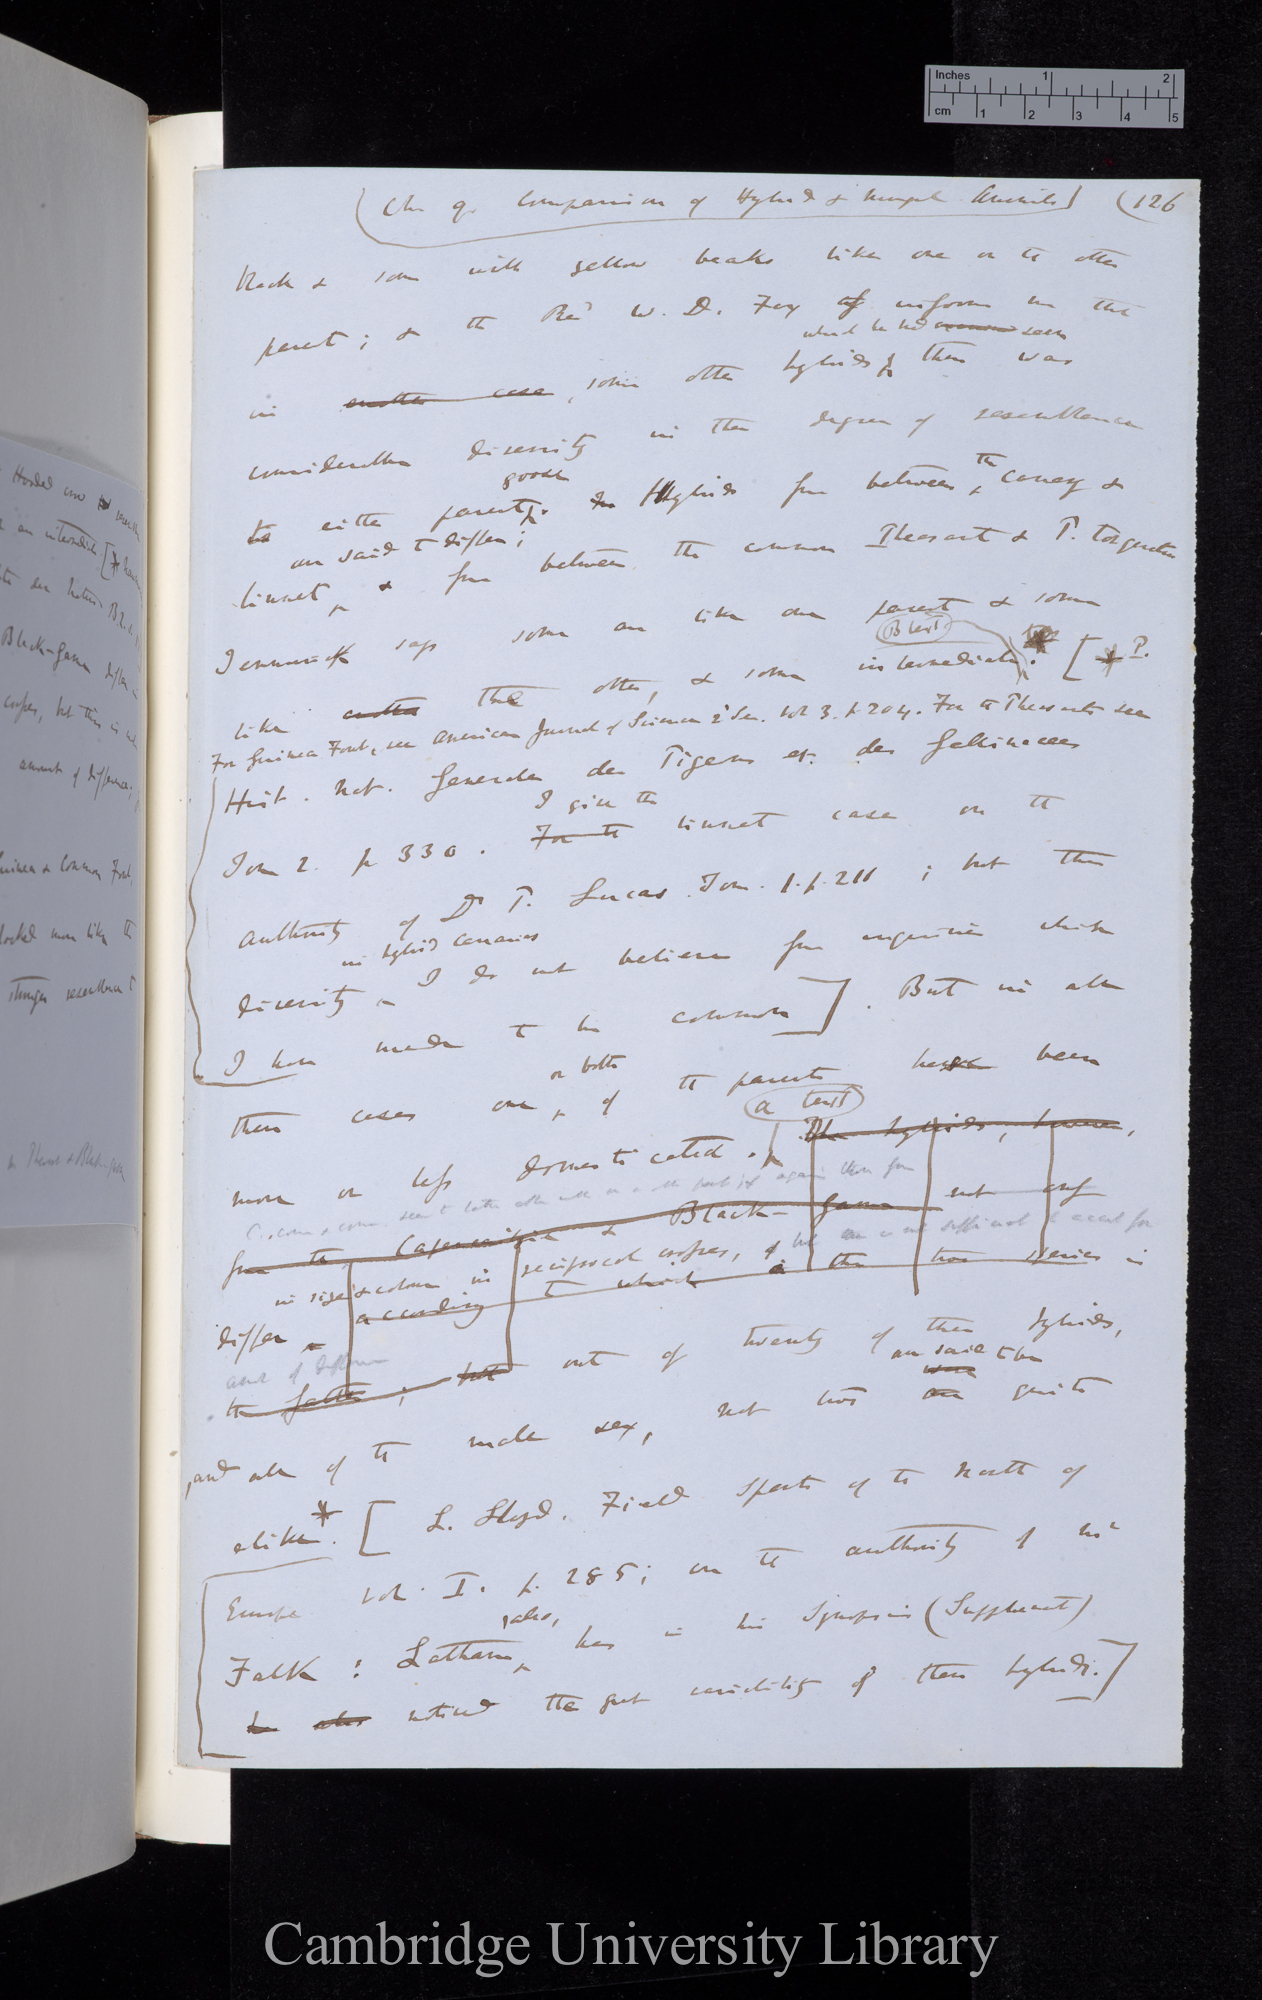 Inches 1 2
cm 1 2 3 4 5
(Ch 9. Comparison of Hybrids & Mongrel Animals) (126
black & some with yellow beaks like one or the other
parent; & the Revd W. D. Fox informs me that
which he had seen
in another case some other hybrids there was
considerable diversity in the degree of resemblance
goose
to either parent. Hybrids from between the canary &
are said to differ;
linnet, & from between the common Pheasant & P. torquatus
Temminck says some are like one parent & some
(B text)
like another the other, & some intermediate. [* P.
For Guinea Fowl, see American Journal of Science 2d Ser. vol 3. p 204. For the Pheasants see
Hist. Nat. Generales des Pigeons et des Gallinacees
I give the
Tom 2. p 330. For the linnet case on the
authority of Dr P. Lucas Tom. 1. p. 211; but this
in hybrid canaries
diversity I do not believe from enquiries which
I have made to be common]. But in all
or both
these cases one of the parents have been
(a text)
more or less domesticated. The hybrids, however,
from the Capercailzie & Black-Game not only
in size & colour in reciprocal crosses,
differ according to which the two species is
amount of difference
the father; but out of twenty of these hybrids,
are said to be
and all of the male sex, not two are quite
alike.* [L. Lloyd. Field Sports of the North of
Europe vol. I. p. 285; on the authority of Mr
also,
Falk: Latham, has in his Synopsis (Supplement)
he also noticed the great variability of these hybrids.]
Hooded crow
Black-Game differ
crosses, but this is
amount of difference;
Guinea & Common Fowl,
looked more like the
stronger resemblance to
Cambridge University Library